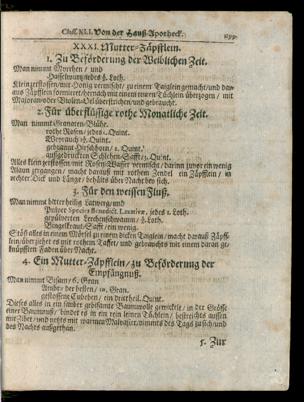 Class. XLI. Von der Hauß-Apotheck.
XXXI. Mutter-Zäpfflein.
1. Zu Beförderung der Weiblichen Zeit.
Man nimmt Myrrhen / und
Haselwurtz jedes ½. Loth.
Klein zerstossen / mit Honig vermischt / zu einem Täiglein gemacht / und dar-
aus Zäpfflein formieret / hernach mit einem reinen Tüchlein überzogen / mit
Majoran- oder Violen-Oel überstrichen / und gebraucht.
2. Für überflüssige rothe Monatliche Zeit.
Man nimmt Granaten-Blühe.
rothe Rosen / jedes 1. Quint.
Weyrauch ½. Quint.
gebrannt Hirschhorn / 1. Quint.
außgedruckten Schlehen-Safft 2. Quint.
Alles klein gestossen mit Rosen-Wasser vermischt / darinn zuvor ein wenig
Alaun zergangen / macht daraus mit rothem Zendel ein Zäpfflein / in
rechter Dick und Länge / behalts über Nacht bey sich.
3. Für den weissen Fluß.
Man nimmt bitter heilig Latwerg / und
Pulver Specier. Benedict. Laxativæ, jedes 1. Loth.
pülverten Lerchenschwamm / ½. Loth.
Bingelkraut-Safft / ein wenig.
Stoß alles in einem Mörsel zu einem dicken Täiglein / macht daraus Zäpff-
lein / überziehet es mit rothem Taffet / und gebrauchts mit einem daran ge-
knüpfften Faden über Nacht.
4. Ein Mutter-Zäpfflein / zu Beförderung der
Empfängnuß.
Man nimmt Bisam / 6. Gran
Ambra der besten / 10. Gran.
gestossene Cubeben / ein dritthel. Quint.
Dieses alles in ein sauber gebisamte Baumwolle gewickelt / in der Grösse
einer Baumnuß / bindet es in ein rein leinen Tüchlein / bestreichts aussen
mit Zibet / und netzts mit warmen Malvasier, nimmts des Tags zu sich / und
des Nachts außgethan.
5. Zur